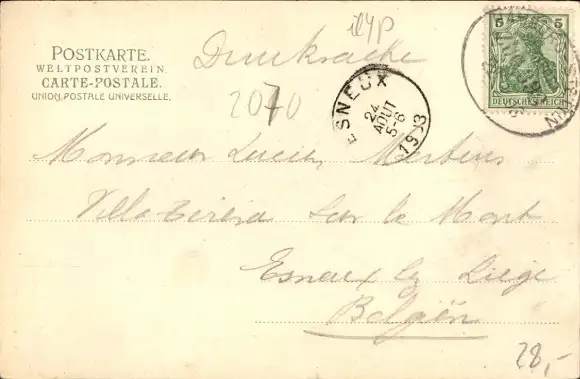 POSTKARTE.
WELTPOSTVEREIN.
CARTE-POSTALE.
UNION POSTALE UNIVERSELLE.
Drucksache
2070
ESNEUX
24
AOUT
5-6
1903
5 5
DEUTSCHES REICH
Monsieur Lucien Mertens
Villa Teresa Sur le Mont
Esneux lez Liège
Belgien
28,-